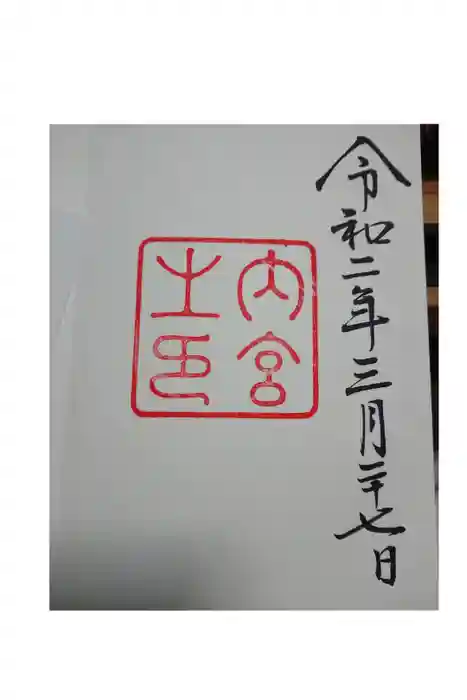 令和二年三月二十七日
内宮
之印